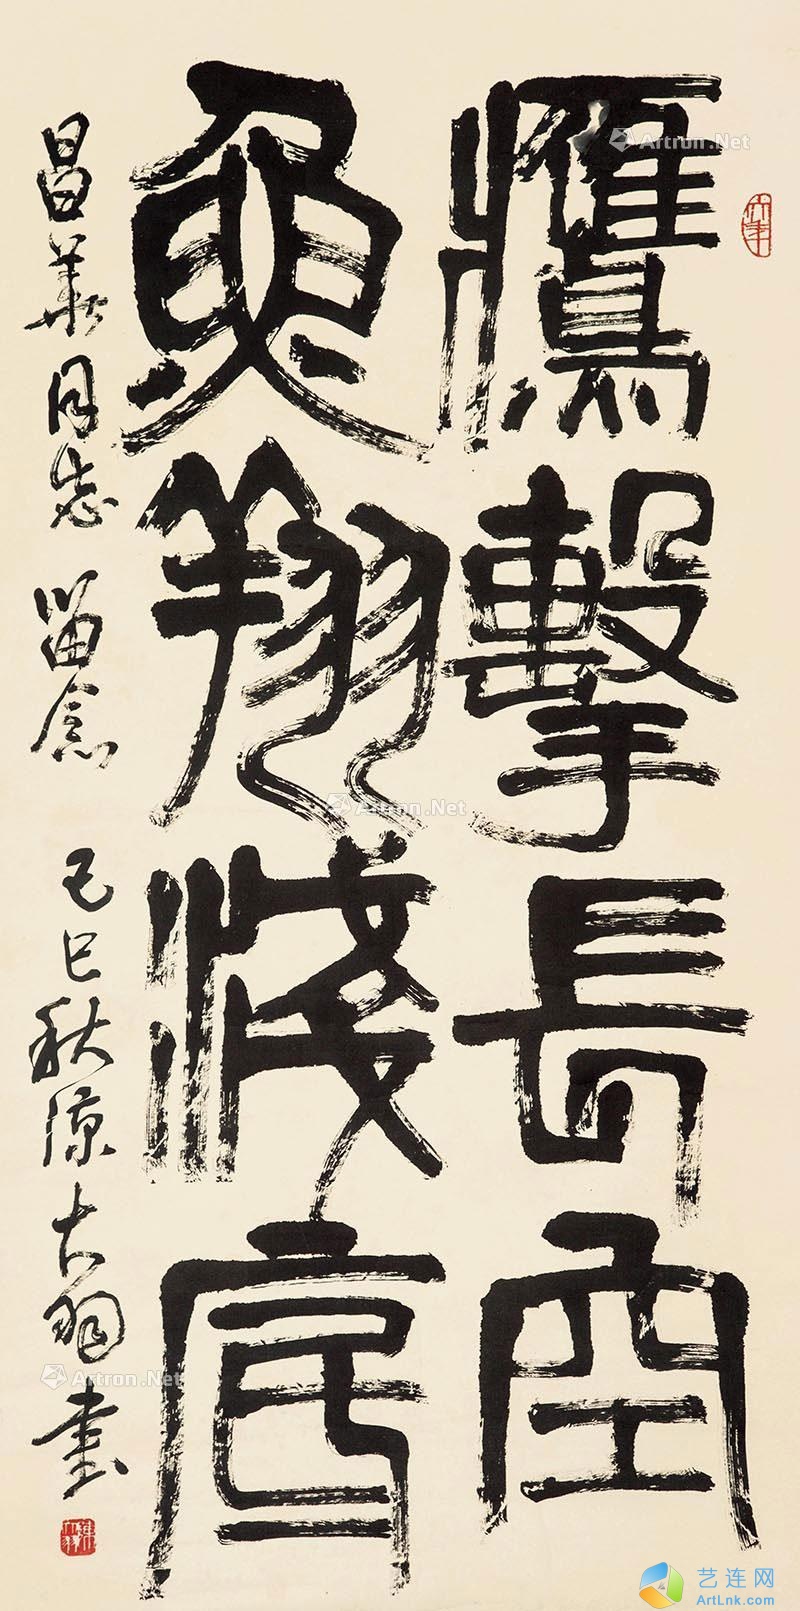 鷹擊長空
魚翔淺底
昌華同志 留念 己巳秋涼大羽書
Artron.Net
Artron.Net
Artron.Net
艺连网
ArtLnk.com